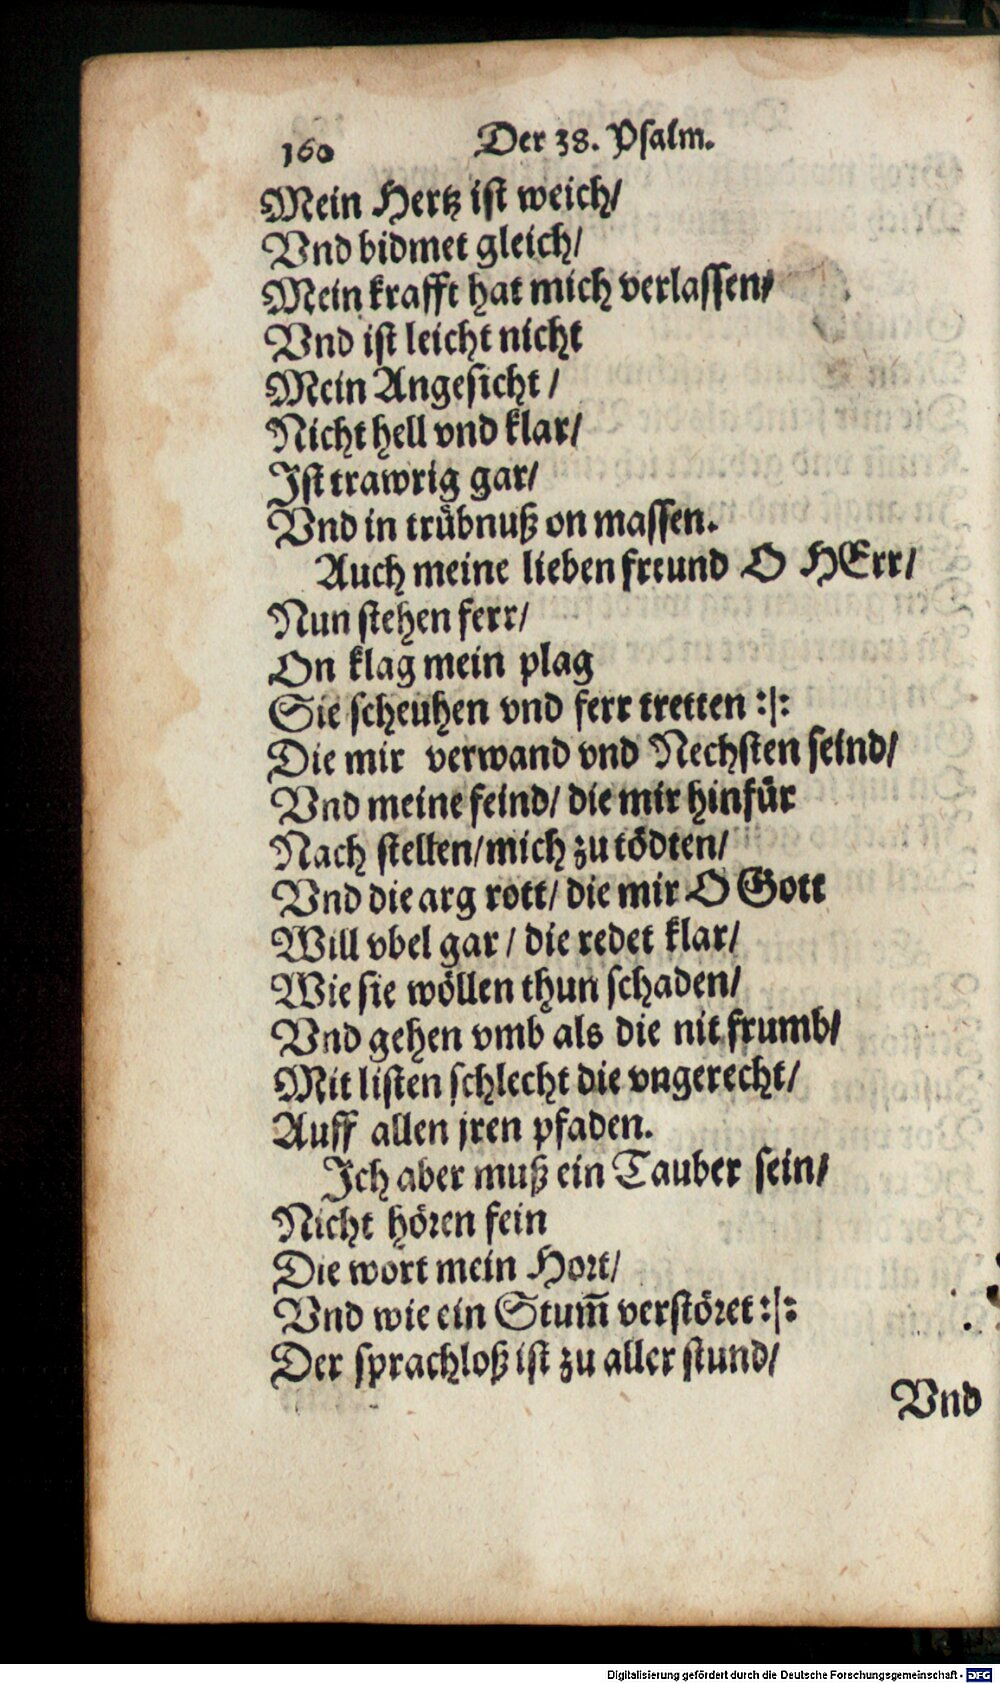 160 Der 38. Psalm.
Mein Hertz ist weich/
Vnd bidmet gleich/
Mein krafft hat mich verlassen/
Vnd ist leicht nicht
Mein Angesicht /
Nicht hell vnd klar/
Ist trawrig gar/
Vnd in trübnuß on massen.
Auch meine lieben freund O HErr/
Nun stehen ferr/
On klag mein plag
Sie scheuhen vnd ferr tretten :|:
Die mir verwand vnd Nechsten seind/
Vnd meine feind/ die mir hinfür
Nach stellen/ mich zu tödten/
Vnd die arg rott/ die mir O Gott
Will vbel gar / die redet klar/
Wie sie wöllen thun schaden/
Vnd gehen vmb als die nit frumb/
Mit listen schlecht die vngerecht/
Auff allen jren pfaden.
Ich aber muß ein Tauber sein/
Nicht hören fein
Die wort mein Hort/
Vnd wie ein Stum̄ verstöret :|:
Der sprachloß ist zu aller stund/
Vnd
Digitalisierung gefördert durch die Deutsche Forschungsgemeinschaft - DFG